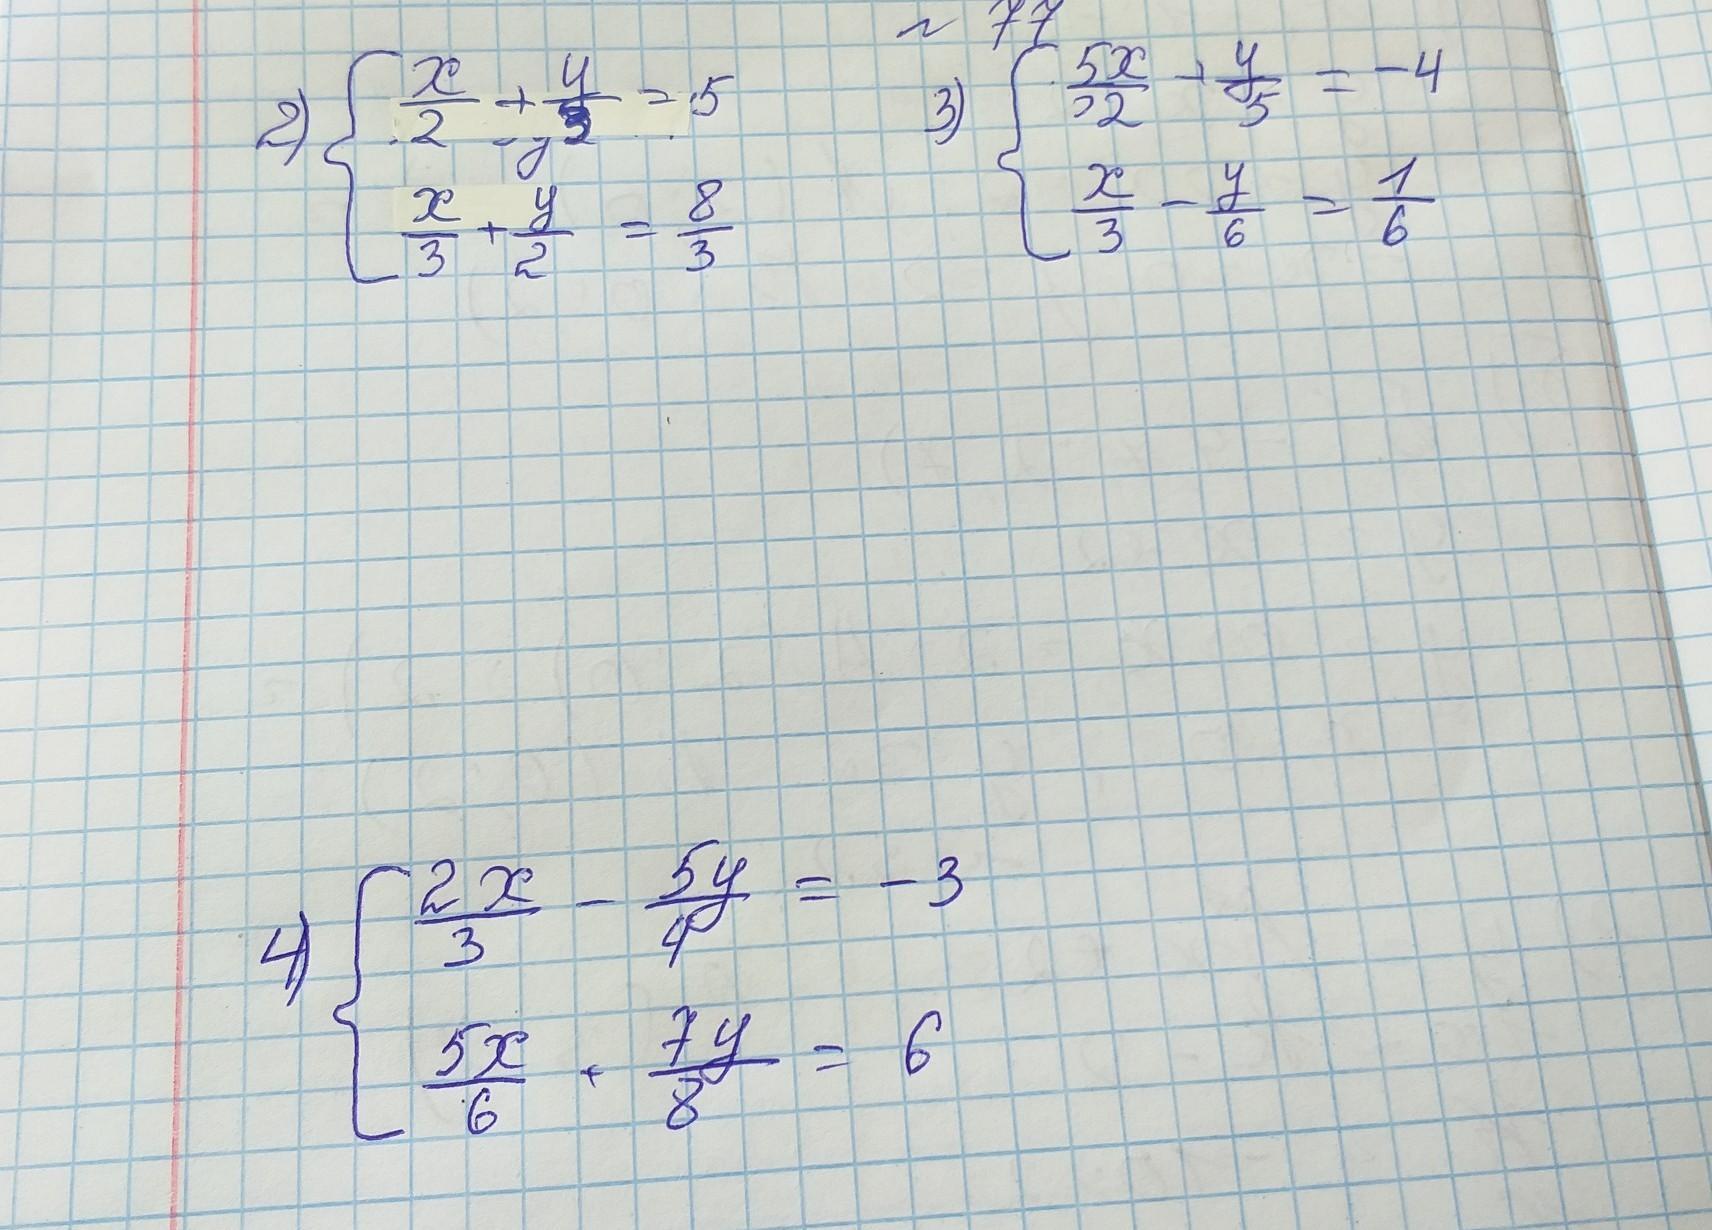 ~ 77
2) { x/2 + y/3 = 5
x/3 + y/2 = 8/3
3) { 5x/2 + y/5 = -4
x/3 - y/6 = 1/6
4) { 2x/3 - 5y/4 = -3
5x/6 + 7y/8 = 6